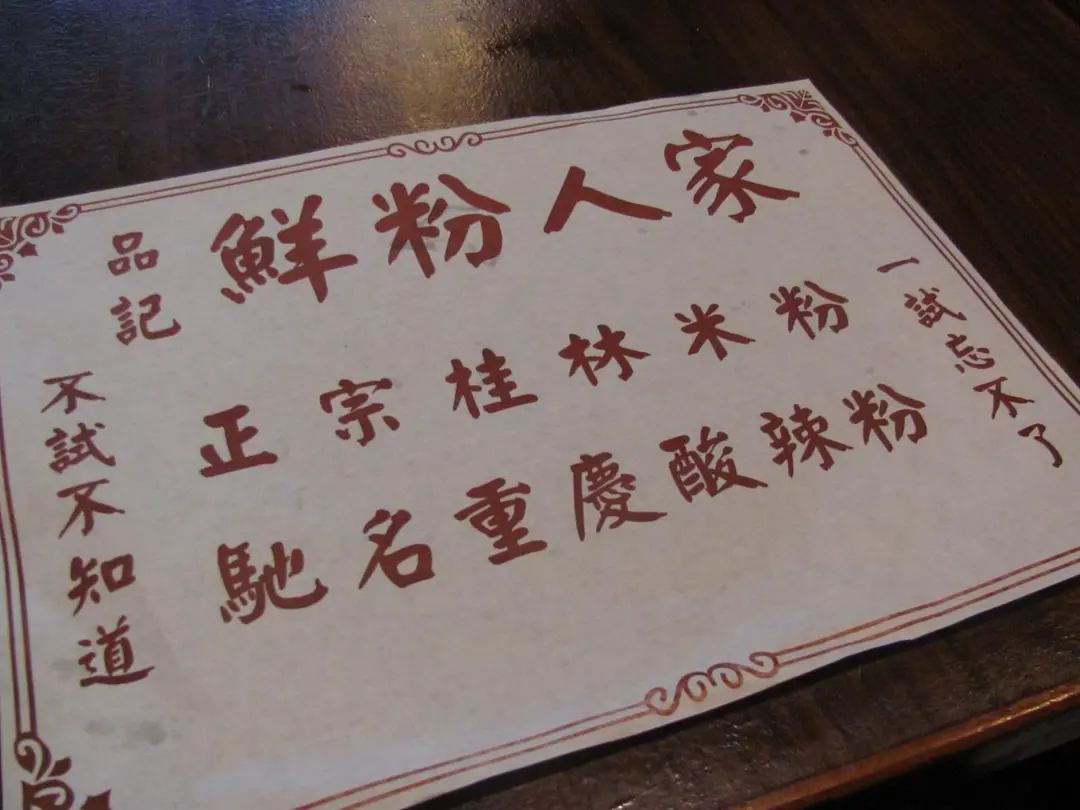 品記
鮮粉人家
正宗桂林米粉
馳名重慶酸辣粉
不試不知道
一試忘不了